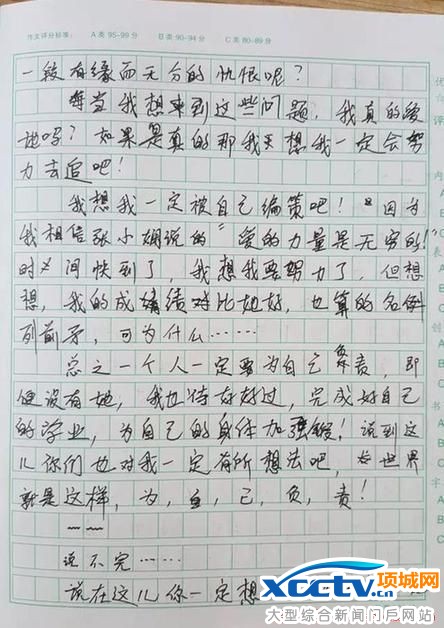 作文评分标准： A类 95-99分 B类 90-94分 C类 80-89分
一段有缘而无分的忧恨呢？
每当我想来到这些问题，我真的爱
她吗？如果是真的那我想我一定会努
力去追吧！
我想我一定被自己鞭策吧！因为
我相信张小娴说的“爱的力量是无穷的！
时间快到了，我想我要努力了，但想
想，我的成绩对比她好，也算的名列
列前矛，可为什么……
总之一个人一定要为自己负责，即
便没有她，我也得好好过，完成好自己
的学业，为自己的身体加强锻！说到这
儿你们也对我一定有所想法吧，世界
就是这样，为，自，己，负，责！
——
说不完……
说在这儿你一定想
优
评
内
表
创
书
字
A
B
C
xcctv.cn 项城网
大型综合新闻门户网站